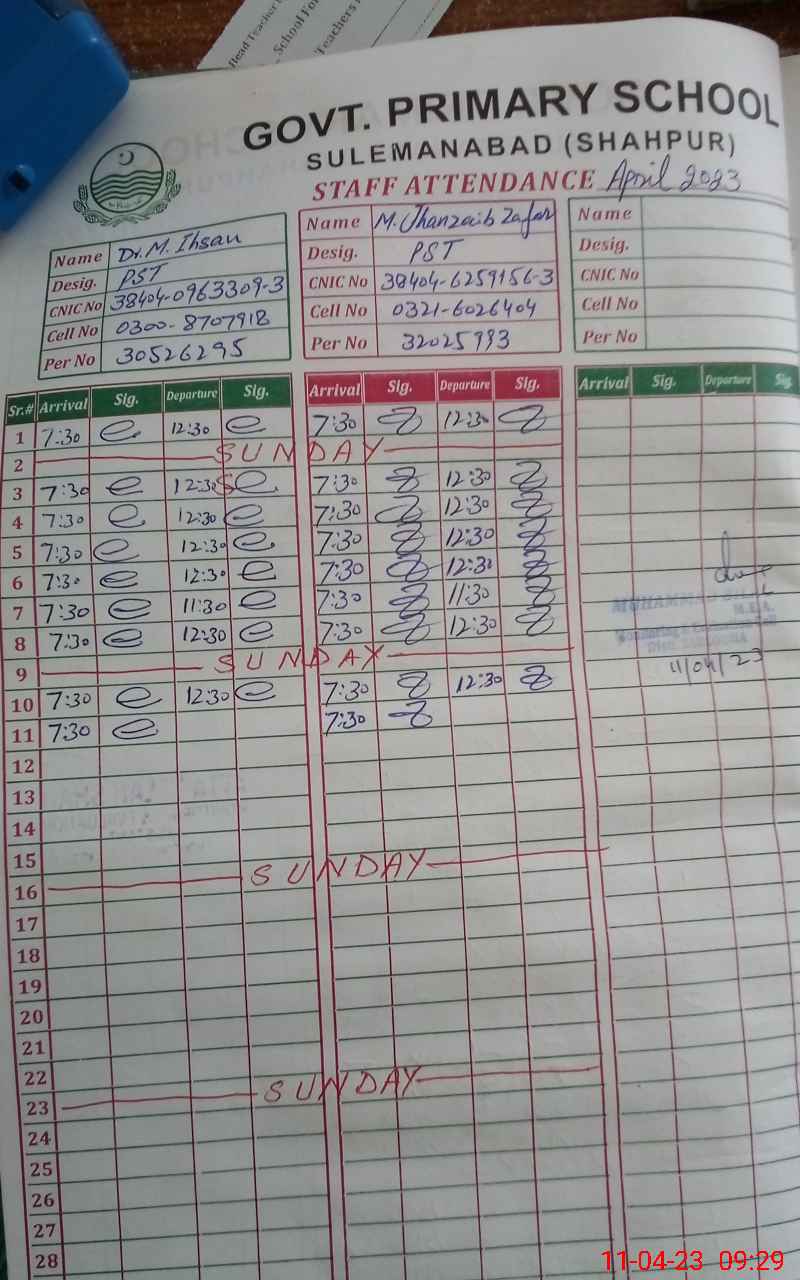 Head Teacher
School For
Teachers
GOVT. PRIMARY SCHOOL
SULEMANABAD (SHAHPUR)
STAFF ATTENDANCE April 2023
Name Dr. M. Ihsan
Desig. PST
CNIC No 38404-0963309-3
Cell No 0300-8707918
Per No 30526295
Name M. Jhanzaib Zafar
Desig. PST
CNIC No 38404-6259156-3
Cell No 0321-6026404
Per No 32025993
Name
Desig.
CNIC No
Cell No
Per No
Sr.# Arrival Sig. Departure Sig. Arrival Sig. Departure Sig. Arrival Sig. Departure Sig.
1 7:30 12:30 7:30 12:30
2 SUNDAY
3 7:30 12:30 7:30 12:30
4 7:30 12:30 7:30 12:30
5 7:30 12:30 7:30 12:30
6 7:30 12:30 7:30 12:30
7 7:30 11:30 7:30 11:30
8 7:30 12:30 7:30 12:30
9 SUNDAY
10 7:30 12:30 7:30 12:30
11 7:30 7:30
12
13
14
15
16 SUNDAY
17
18
19
20
21
22
23 SUNDAY
24
25
26
27
28
MUHAMMAD
M.E.A.
11/04/23
11-04-23 09:29